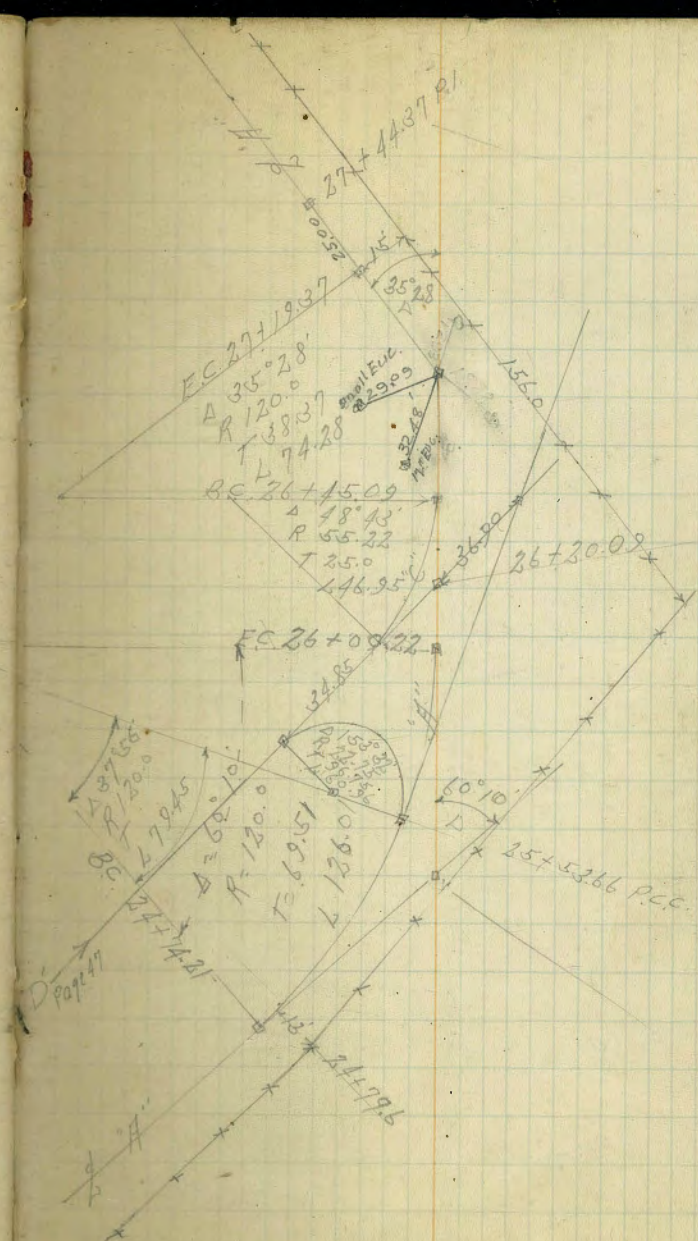 ℄ "A"
27+44.37 P.I.
25.00
15'
35°28'
Δ
E.C. 27+19.37
Δ 35°28'
R 120.0
T 38.37
L 74.28
Small Euc.
29.09
32.48'
Euc.
156.0
B.C. 26+45.09
Δ 48°43'
R 55.22
T 25.0
L 46.95
"C"
36.90
26+20.09
E.C. 26+00.22
34.85
"A"
Δ 37°56'
R 120.0
T
L 79.45
B.C.
Δ = 60°10'
R = 120.0
T = 69.51
L 126.01
60°10'
Δ
25+53.66 P.C.C.
24+74.21
"D"
Page 47
13'
24+79.6
℄ "A"